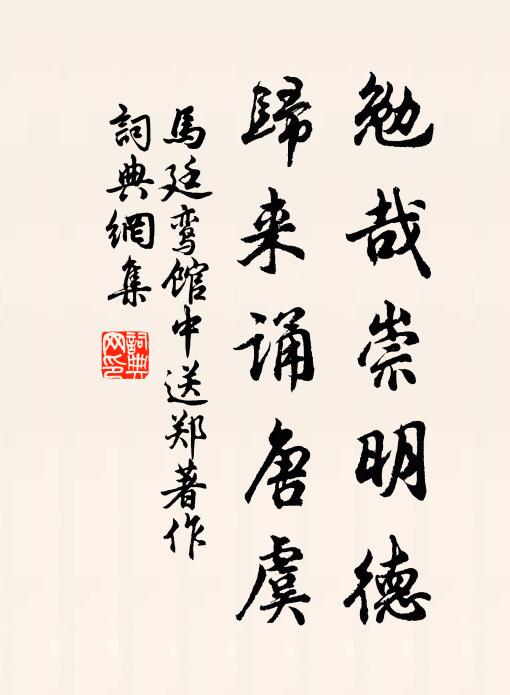 勉哉崇明德
歸来诵唐虞
馬廷鸾館中送郑著作
詞典網集
詞典網印